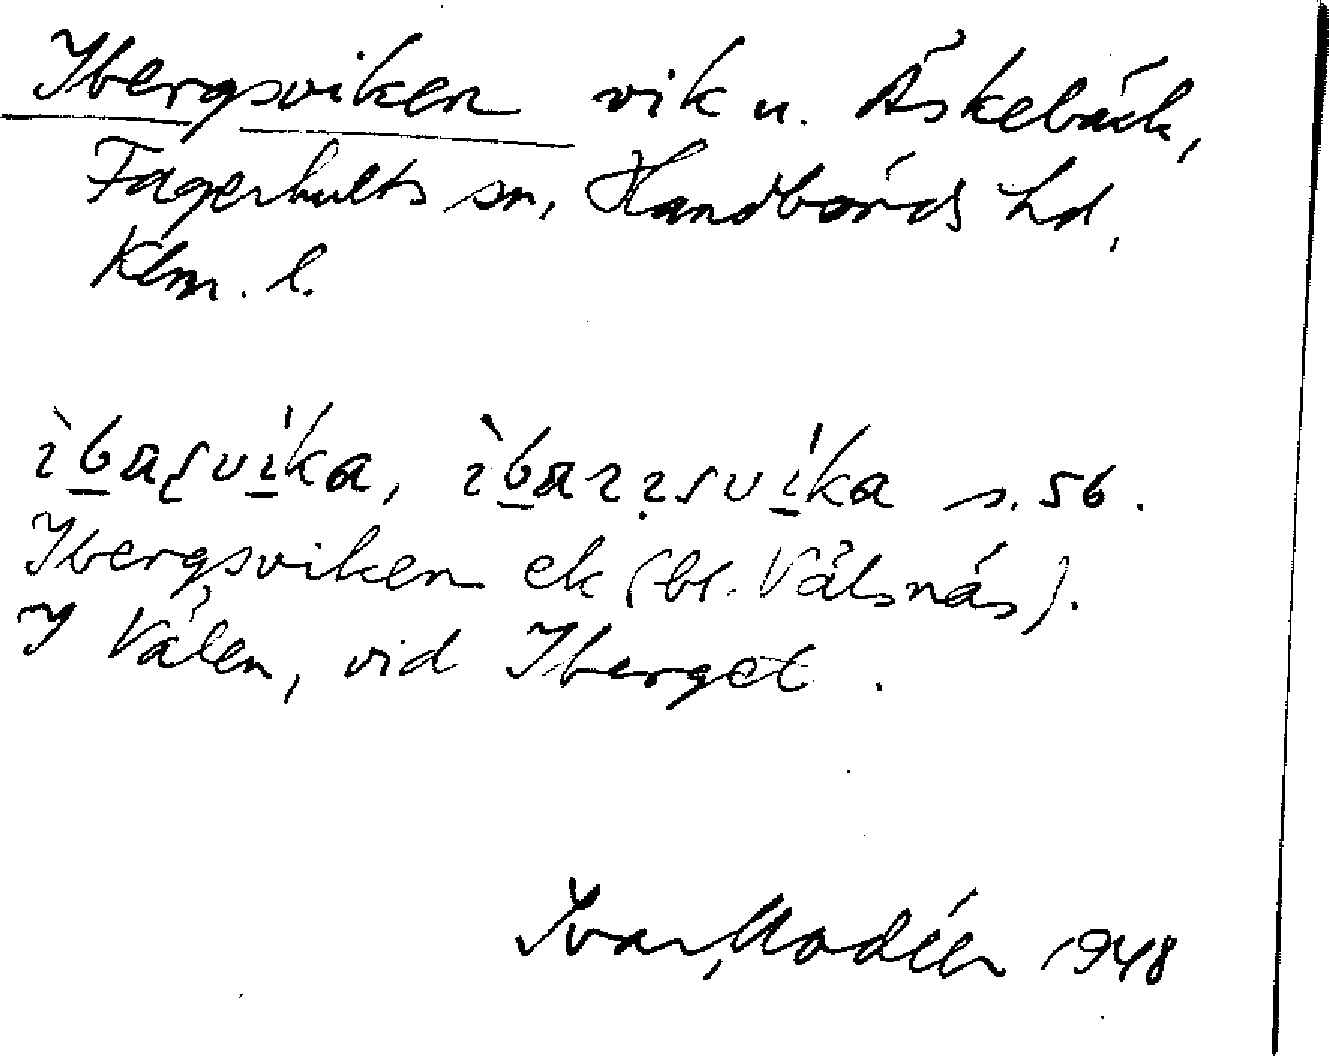 Ibergsviken vik u. Åskebäck,
Fagerhults sn, Handbörds hd,
Klm. l.
s. 56.
Ibergsviken ek (bl. Välsnäs).
I Välen, vid Iberget.
Ivar Modéer 1948